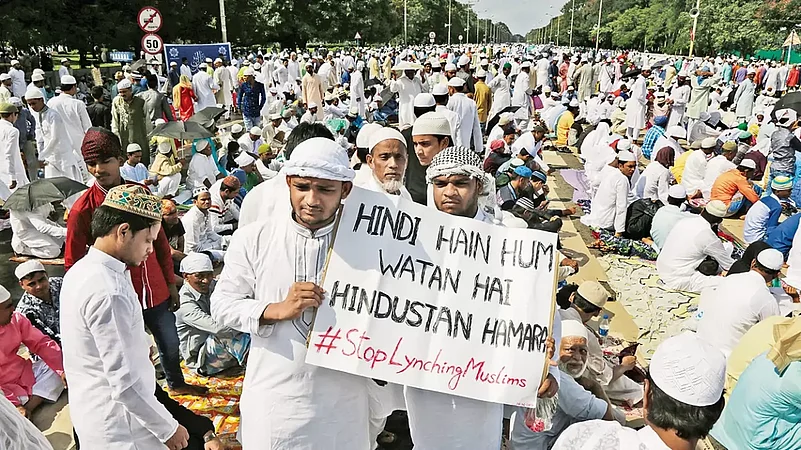 50
HINDI HAIN HUM
WATAN HAI
HINDUSTAN HAMARA
#StopLynchingMuslims